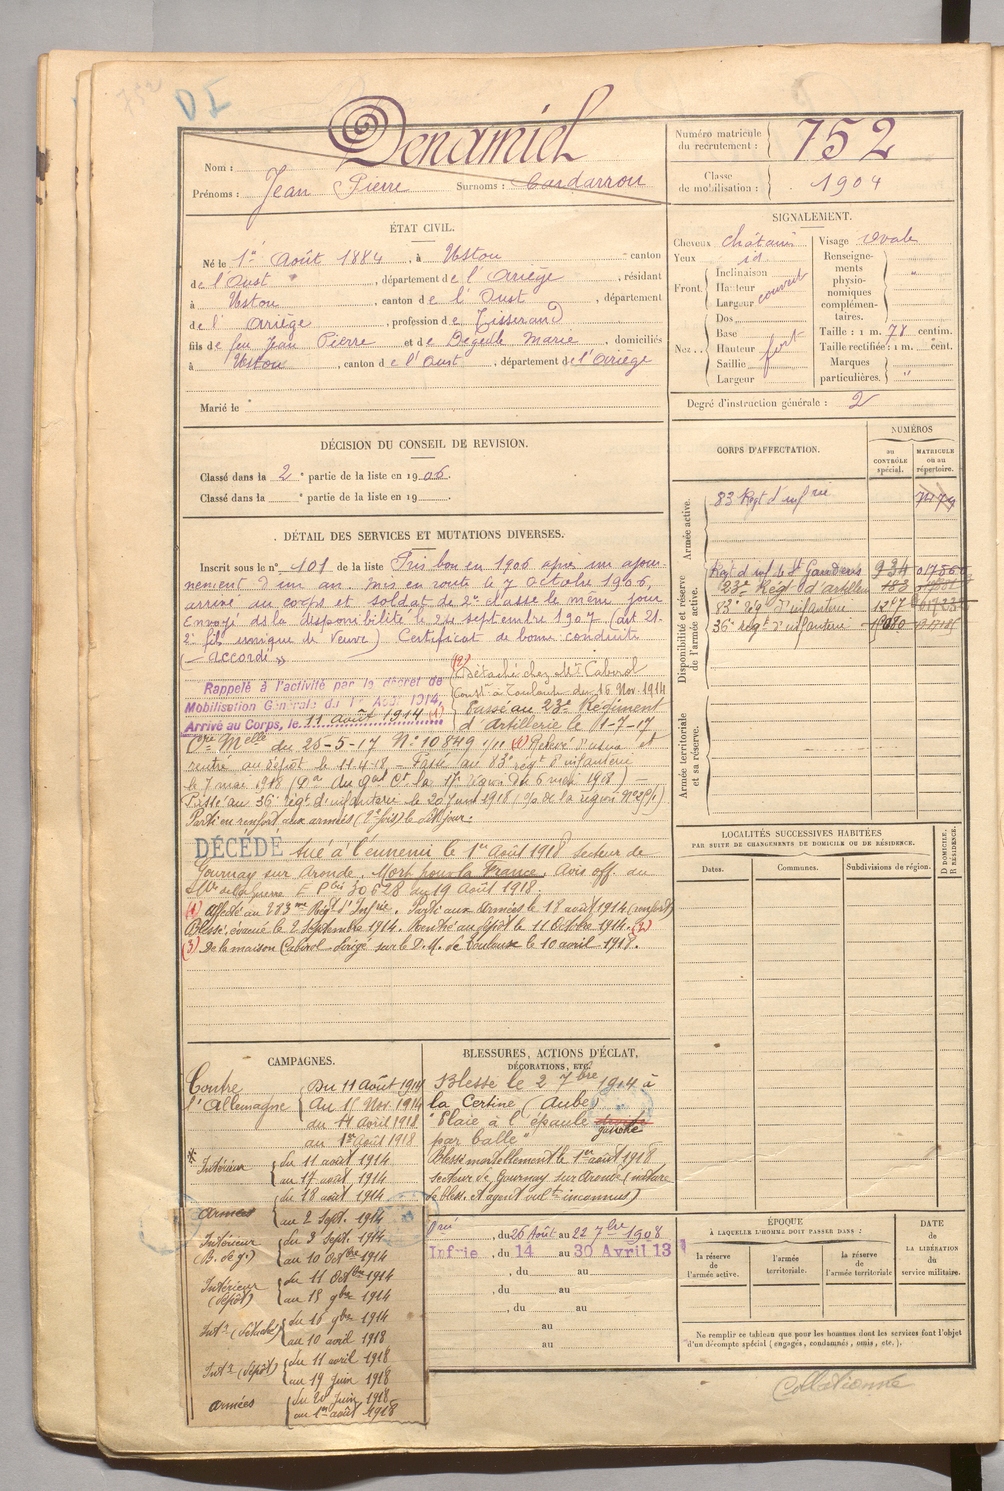 DI
Numéro matricule du recrutement : 752
Classe de mobilisation : 1904
Nom : Denamiel
Prénoms : Jean Pierre Surnoms : Cardarrou
ÉTAT CIVIL.
Né le 1er Août 1884, à Ustou canton
de l'Oust, département de l'Ariège, résidant
à Ustou, canton de l'Oust, département
de l'Ariège, profession de Tisserand
fils de feu Jean Pierre et de Degeille Marie, domiciliés
à Ustou, canton de l'Oust, département de l'Ariège
Marié le
SIGNALEMENT.
Cheveux châtains
Yeux id
Front. Inclinaison Hauteur Largeur couvert
Nez.. Dos Base Hauteur Saillie Largeur fort
Visage ovale
Renseignements physionomiques complémentaires. "
Taille : 1 m. 78 centim.
Taille rectifiée : 1 m. cent.
Marques particulières. "
Degré d'instruction générale : 2
DÉCISION DU CONSEIL DE REVISION.
Classé dans la 2e partie de la liste en 1906.
Classé dans la e partie de la liste en 19
CORPS D'AFFECTATION.
NUMÉROS
au CONTRÔLE spécial.
MATRICULE ou au répertoire.
Armée active.
83 Regt d'infrie
Disponibilité et réserve de l'armée active.
Regt d'inf de St Gaudens 934
23e Régt d'artillerie 183
83e rég d'infanterie 1297
36e régt d'infanterie
Armée territoriale et sa réserve.
DÉTAIL DES SERVICES ET MUTATIONS DIVERSES.
Inscrit sous le no 101 de la liste Pris bon en 1906 après un ajour-
nement d'un an. Mis en route le 7 octobre 1906,
arrivé au corps et soldat de 2e classe le même jour
Envoyé ds la disponibilité le 22 septembre 1907 (art 21-
2e fils unique de Veuve) Certificat de bonne conduite
"accordé"
Rappelé à l'activité par le décret de
Mobilisation Générale du 1er Août 1914,
Arrivé au Corps, le 11 août 1914 (1)
(2) Détaché chez Mr Cabirol
Constr à Toulouse du 16 Nov. 1914
Passé au 23e Régiment
d'Artillerie le 1-7-17
du 25-5-17 No 10849 (3) Relevé d'usine et
rentré au dépôt le 11-4-18 - Passé au 83e régt d'infanterie
le 7 mai 1918 du gal Ct la 17e région du 6 mai 1918) -
Passé au 36e régt d'infanterie le 20 juin 1918
Parti en renfort aux armées (2e fois) le dit jour.
DÉCÉDÉ tué à l'ennemi le 1er août 1918 secteur de
Gournay sur Aronde. Mort pour la France. Avis off. du
Mre de la Guerre 30628 du 19 Août 1918.
(1) Affecté au 283me Régt d'Infrie. Parti aux armées le 18 août 1914 (renfort)
Blessé, évacué le 2 septembre 1914. Rentré au dépôt le 11 Octobre 1914. (2)
(3) De la maison Cabirol dirigé sur le D.M. de Toulouse le 10 avril 1918.
LOCALITÉS SUCCESSIVES HABITÉES
PAR SUITE DE CHANGEMENTS DE DOMICILE OU DE RÉSIDENCE.
Dates. Communes. Subdivisions de région.
D DOMICILE. R RÉSIDENCE.
CAMPAGNES.
Contre l'Allemagne
Du 11 Août 1914
Au 15 Nov. 1914
du 11 Avril 1918
au 1er Août 1918
* Intérieur du 11 août 1914
au 17 août 1914
Armées du 18 août 1914
au 2 Sept. 1914
Intérieur (B. de g.) du 3 Sept. 1914
au 10 Octbre 1914
Intérieur (dépôt) du 11 Octbre 1914
au 15 9bre 1914
Intr (détaché) du 16 9bre 1914
au 10 avril 1918
Intr (dépôt) du 11 avril 1918
au 19 juin 1918
Armées du 20 juin 1918
au 1er août 1918
BLESSURES, ACTIONS D'ÉCLAT,
DÉCORATIONS, ETC.
Blessé le 2 7bre 1914 à
la Certine (Aube)
"Plaie à l'épaule droite gauche
par balle"
Blessé mortellement le 1er août 1918
secteur de Gournay sur Aronde (nature
de bless. et agent vulnt inconnus)
du 26 Août au 22 7bre 1908
Infrie, du 14 au 30 Avril 13
, du au
, du au
, du au
au
au
ÉPOQUE
À LAQUELLE L'HOMME DOIT PASSER DANS :
la réserve de l'armée active.
l'armée territoriale.
la réserve de l'armée territoriale
DATE de LA LIBÉRATION du service militaire.
Ne remplir ce tableau que pour les hommes dont les services font l'objet
d'un décompte spécial (engagés, condamnés, omis, etc.).
Collationné